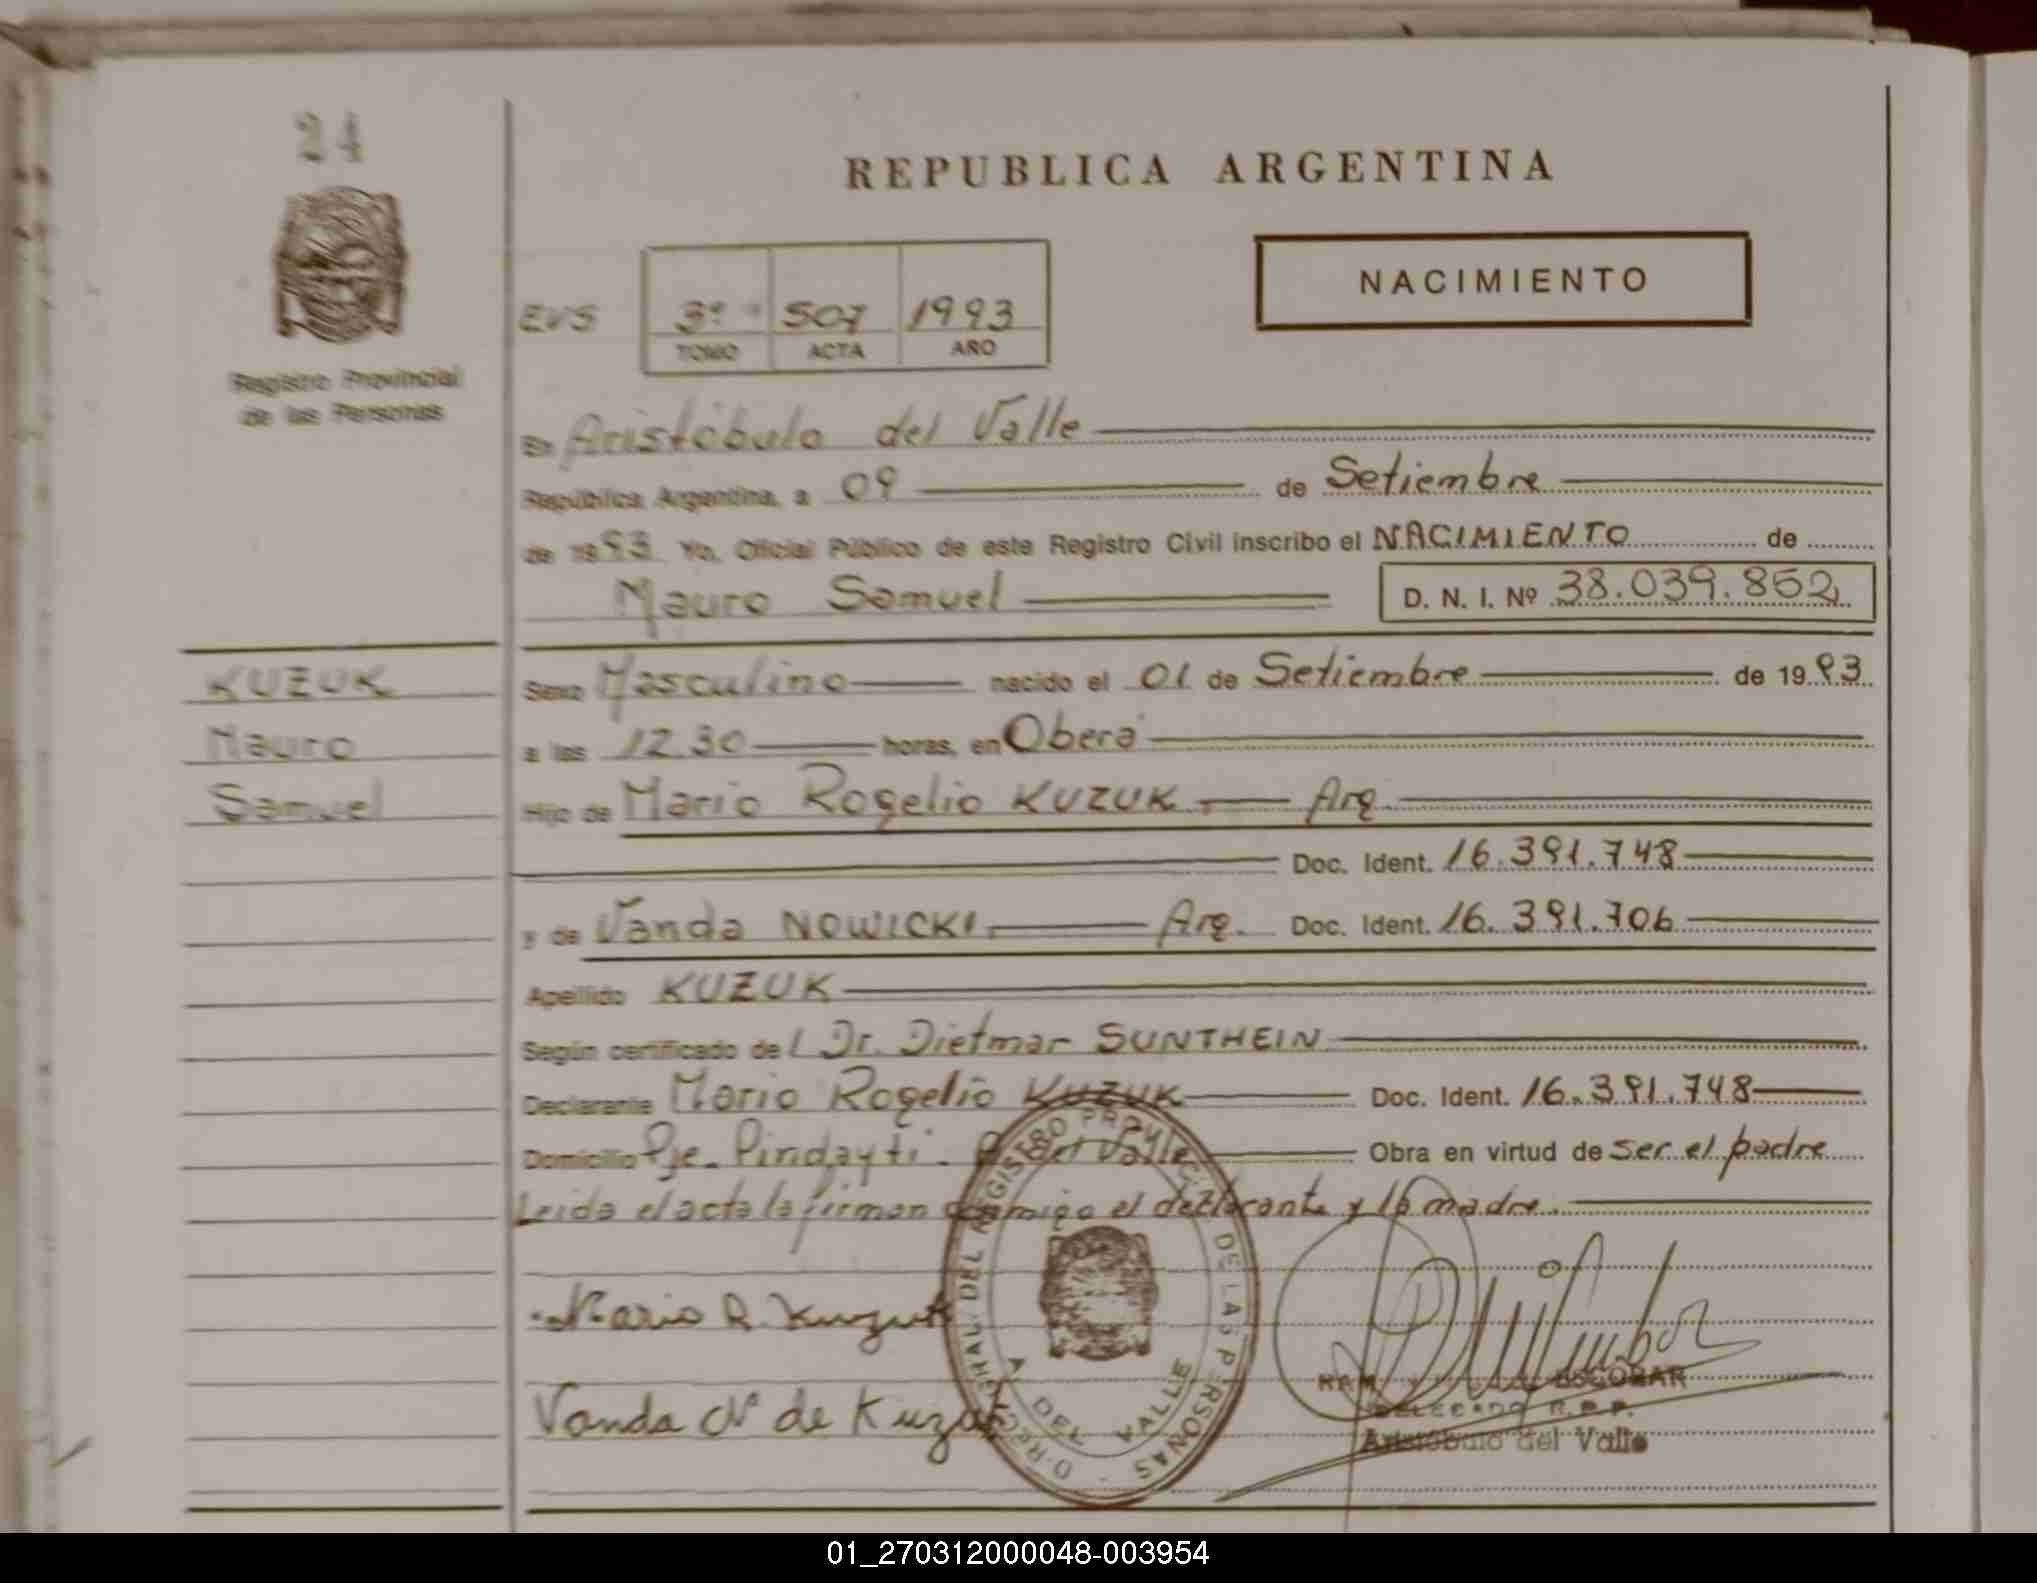 24
REPUBLICA ARGENTINA
NACIMIENTO
EVS 3º 507 1993
TOMO ACTA AÑO
Registro Provincial
de las Personas
En Aristóbulo del Valle
República Argentina, a 09 de Setiembre
de 1993 Yo, Oficial Público de este Registro Civil inscribo el NACIMIENTO de
Mauro Samuel D. N. I. Nº 38.039.852
KUZUK
Mauro
Samuel
Sexo Masculino nacido el 01 de Setiembre de 1993
a las 12.30 horas, en Oberá
Hijo de Mario Rogelio KUZUK Arg.
Doc. Ident. 16.391.748
y de Vanda NOWICKI Arg. Doc. Ident. 16.391.706
Apellido KUZUK
Según certificado del Dr. Dietmar SUNTHEIN
Declarante Mario Rogelio KUZUK Doc. Ident. 16.391.748
Domicilio Pje. Pindayti. A. del Valle Obra en virtud de ser el padre
Leida el acta la firman conmigo el declarante y la madre.
Mario R. Kuzuk
Vanda N. de Kuzuk
REGISTRO PROVINCIAL DE LAS PERSONAS
A DEL VALLE
ESCOBAR
DELEGADO R.P.P.
Aristóbulo del Valle
01_270312000048-003954